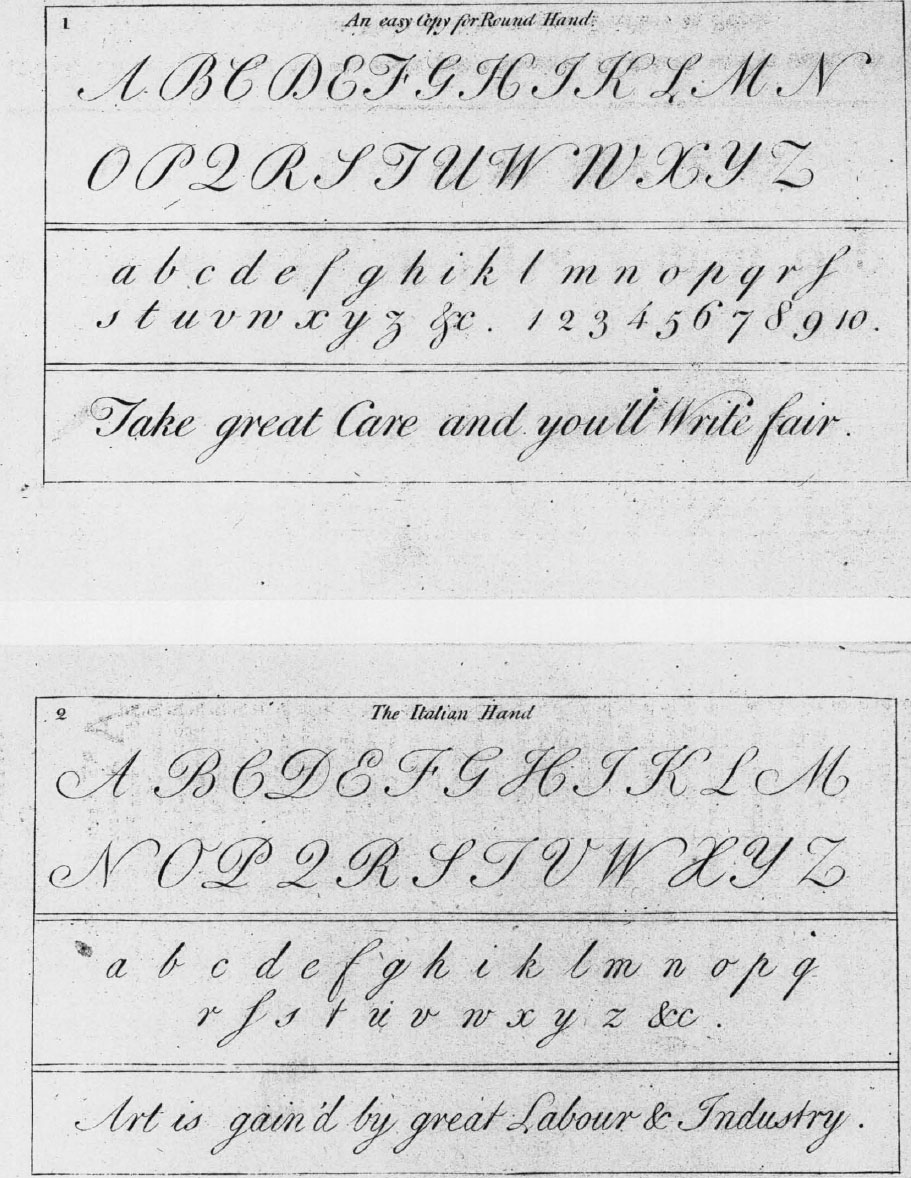 1
An easy Copy for Round Hand.
A B C D E F G H I K L M N
O P Q R S T U W W X Y Z
a b c d e f g h i k l m n o p q r ſ
s t u v w x y z &c. 1 2 3 4 5 6 7 8 9 10.
Take great Care and you'll Write fair.
2
The Italian Hand
A B C D E F G H I K L M
N O P Q R S T V W X Y Z
a b c d e f g h i k l m n o p q
r ſ s t u v w x y z &c.
Art is gain'd by great Labour & Industry.